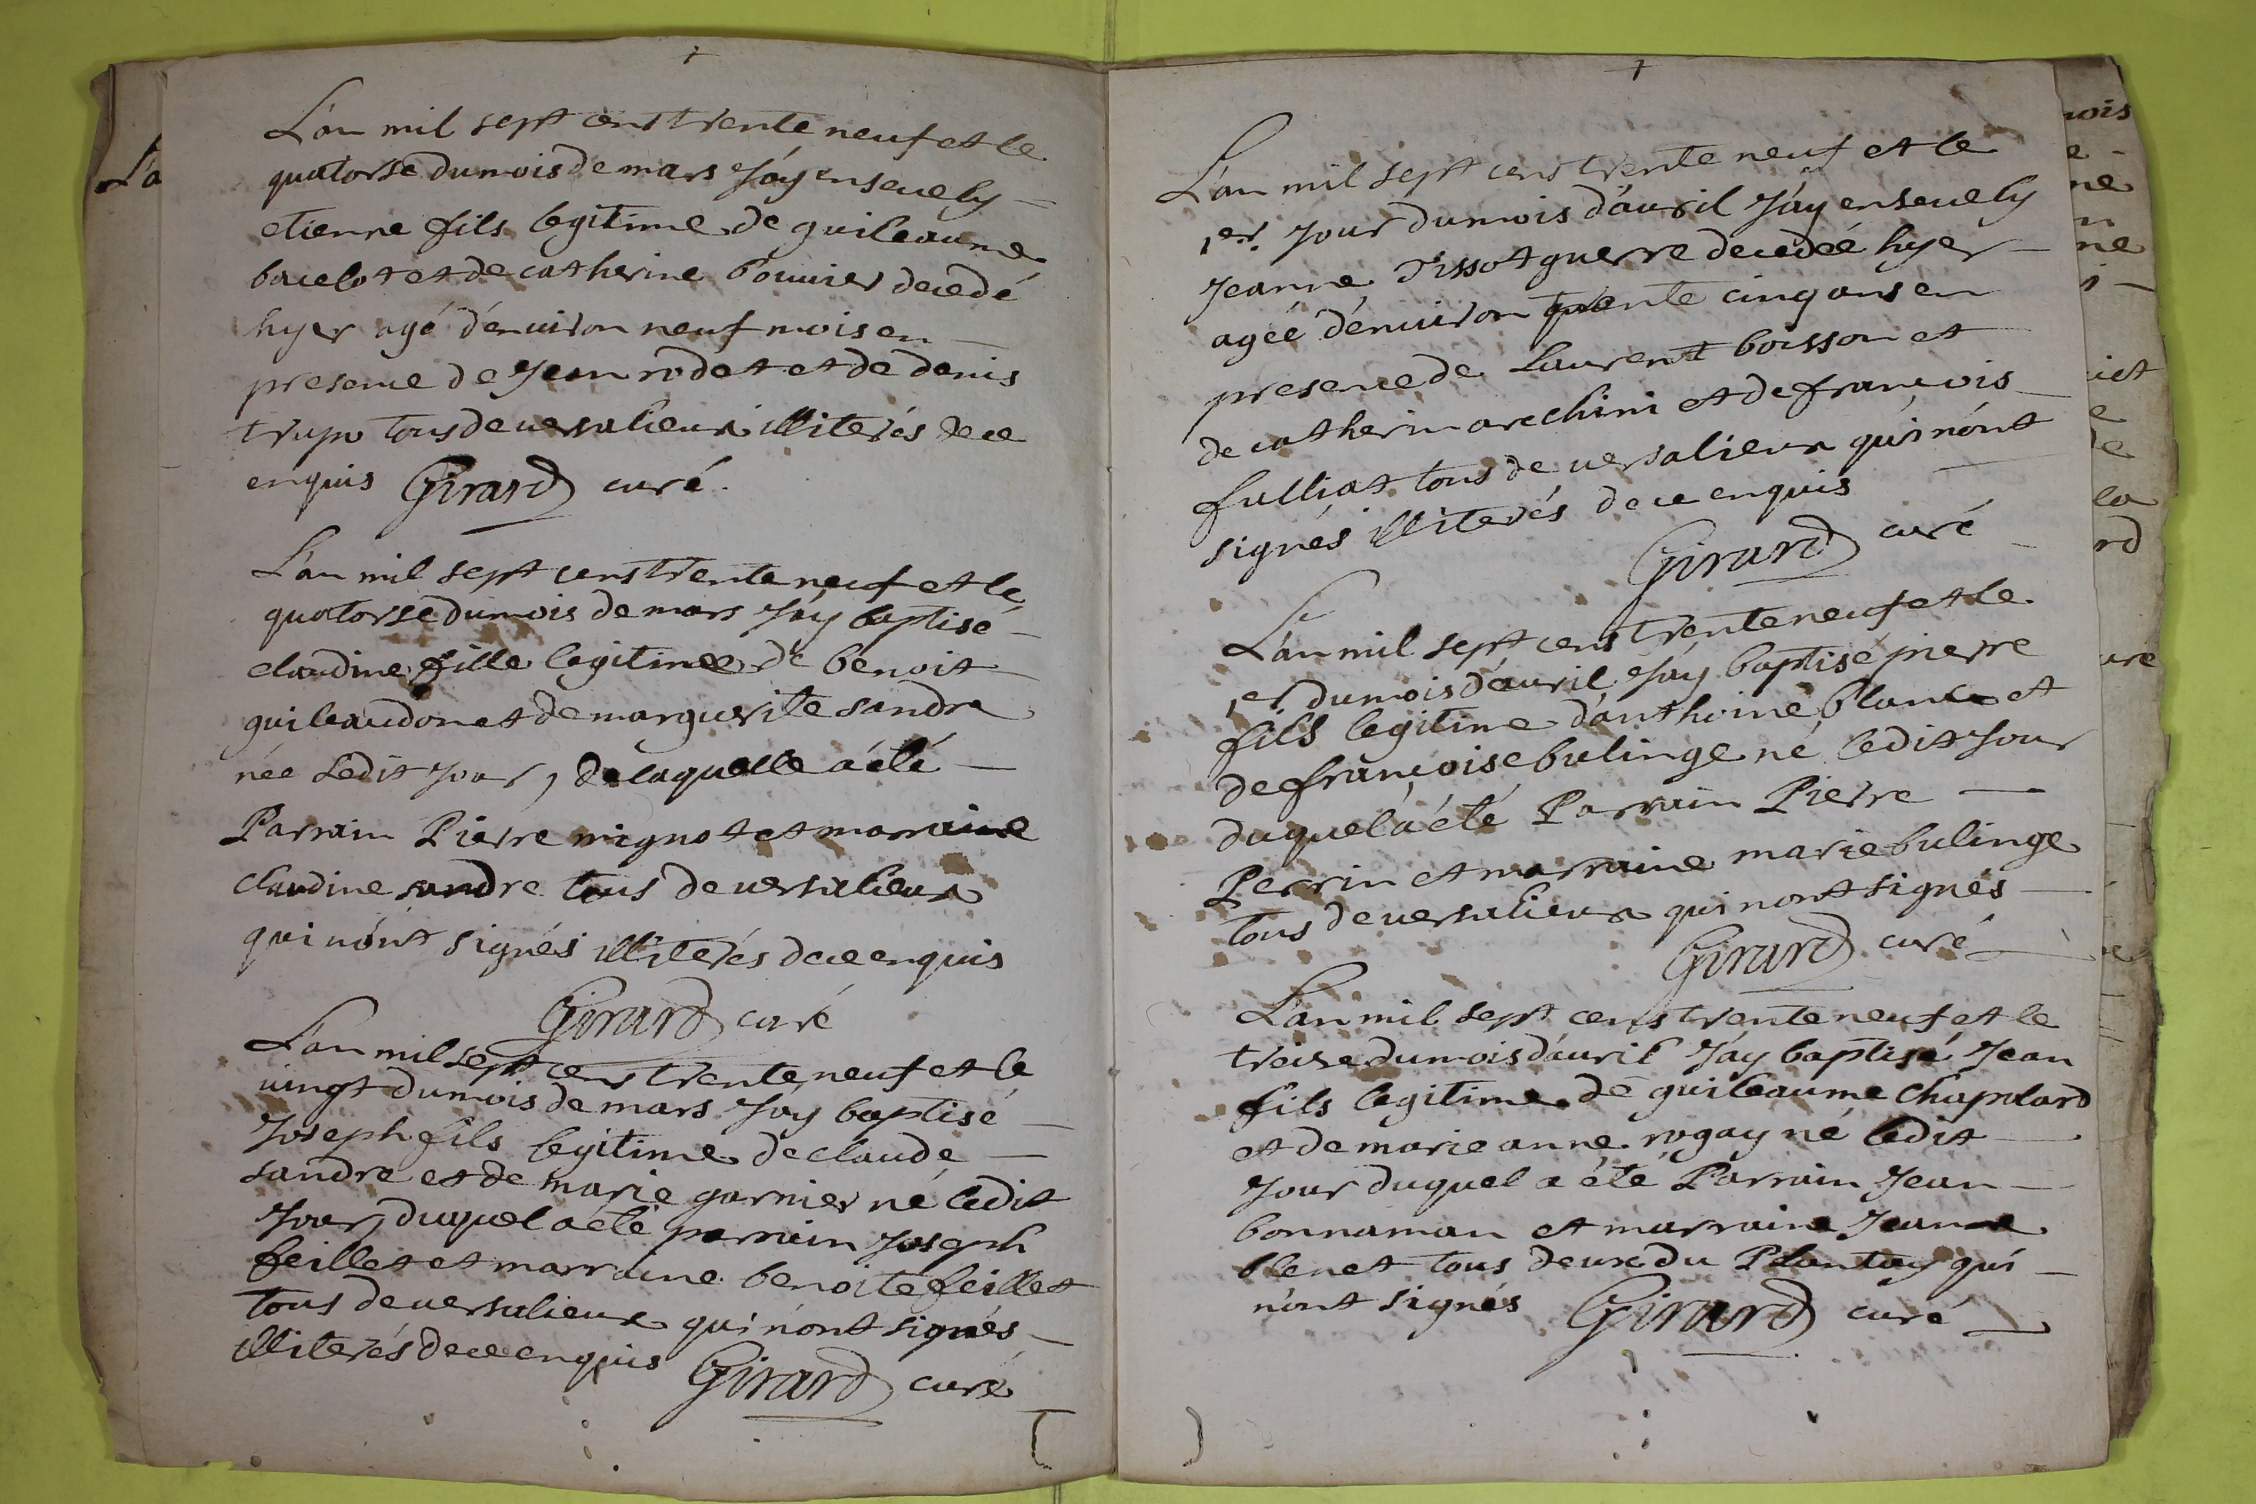 L'an mil sept cens trente neuf et le
quatorse du mois de mars J'áy enseuely
etienne fils legitime de guileaume
bacelot et de catherine bouuier decedé
hyer agé d'enuiron neuf mois en
presence de Jean rodet et de denis
trupo tous de uersalieux illiterés de ce
enquis Girard curé.
L'an mil sept cens trente neuf et le
quatorse du mois de mars J'áy baptisé
claudine fille legitimee de benoit
guileaudon et de marguerite sandra
née ledit Jour, de laquelle á été
Parrain Pierre mignot et marraine
claudine sandre tous de uersalieux
qui n'ont signés illiterés de ce enquis
Girard curé
L'an mil sept cens trente neuf et le
uingt du mois de mars J'áy baptisé
Joseph fils legitime de claude
sandre et de marie garnier né ledit
Jour, duquel a été parrain Joseph
feillet et marraine benoite feillet
tous de uersalieux qui n'ont signés
illiterés de ce enquis Girard curé
L'an mil sept cens trente neuf et le
1er. Jour du mois d'auril J'áy enseuely
Jeanne Tissot guerre decedéé hyer
agéé d'enuiron trente cinq ans en
presence de Laurent boisson et
de catherin arechini et de françois
fulliat tous de uersalieux qui n'ont
signés illiterés de ce enquis
Girard curé
L'an mil sept cens trente neuf et le
1er du mois d'auril J'áy baptisé pierre
fils legitime d'anthoine blanc et
de françoise bulinge né ledit Jour
duquel á été Parrain Pierre
Perrin et marraine marie bulinge
tous de uersalieux qui nont signés
Girard curé
L'an mil sept cens trente neuf et le
treize du mois d'auril J'áy baptisé Jean
fils legitime de guileaume Chapolard
et de marie anne rogay né ledit
Jour duquel a été Parrain Jean
bonnaman et marraine Jeanne
blenet tous deux du Plantay qui
n'ont signés Girard curé